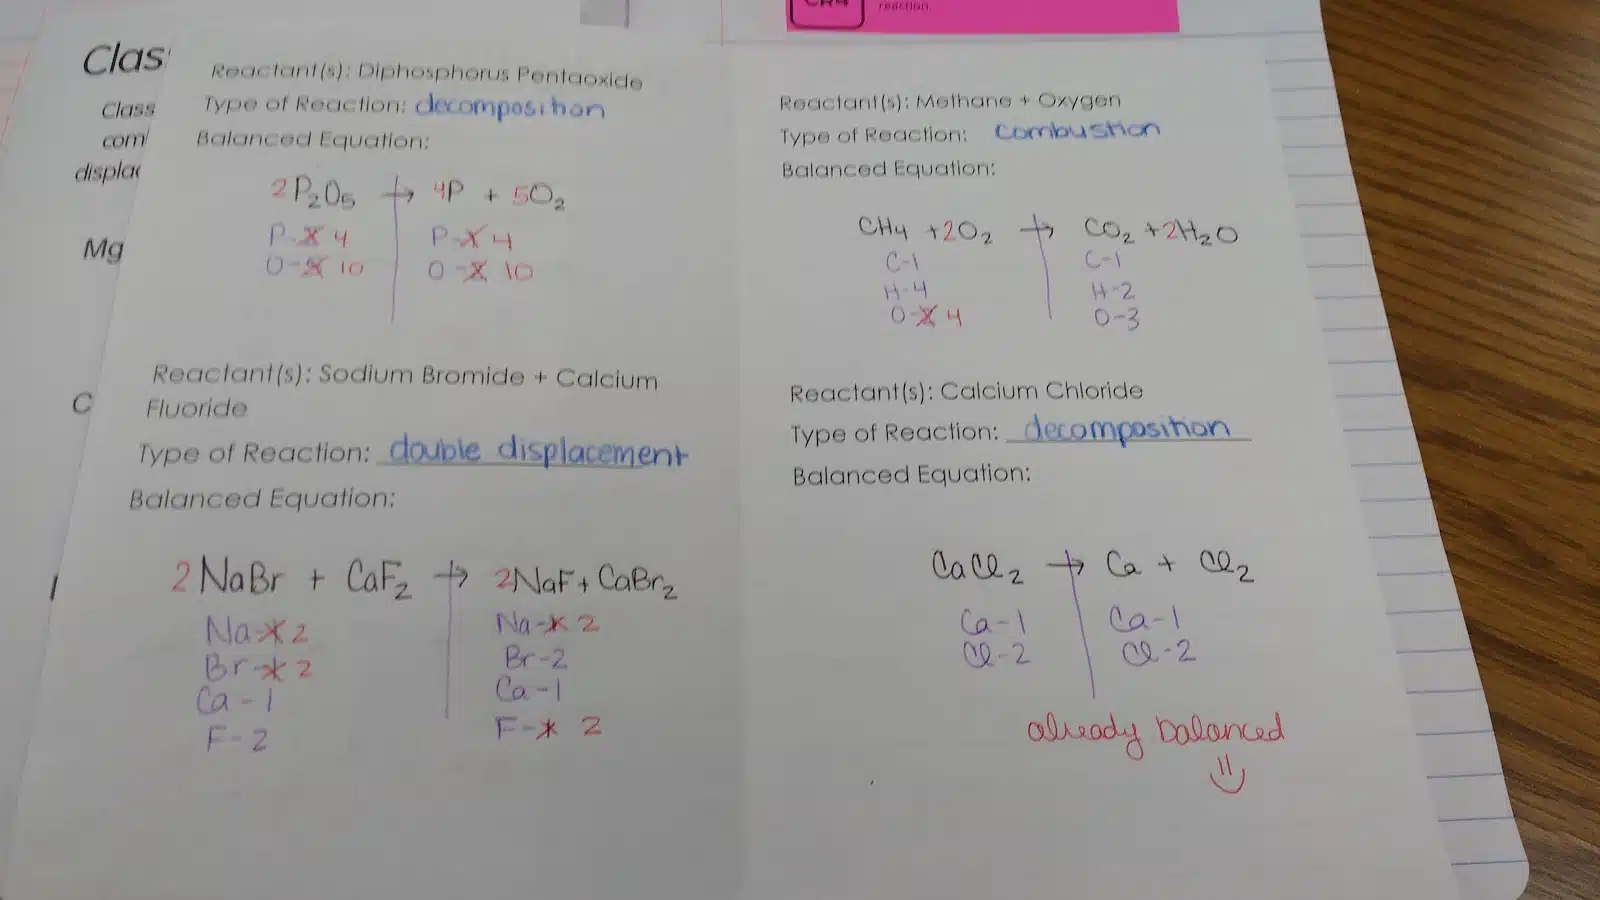 reaction.
Clas
Class
com
displac
Mg
C
Reactant(s): Diphosphorus Pentaoxide
Type of Reaction: decomposition
Balanced Equation:
2P₂O₅ → 4P + 5O₂
P-X 4 P-X 4
O-X 10 O-X 10
Reactant(s): Sodium Bromide + Calcium
Fluoride
Type of Reaction: double displacement
Balanced Equation:
2NaBr + CaF₂ → 2NaF + CaBr₂
Na-X 2 Na-X 2
Br-X 2 Br-2
Ca-1 Ca-1
F-2 F-X 2
Reactant(s): Methane + Oxygen
Type of Reaction: combustion
Balanced Equation:
CH₄ + 2O₂ → CO₂ + 2H₂O
C-1 C-1
H-4 H-2
O-X 4 O-3
Reactant(s): Calcium Chloride
Type of Reaction: decomposition
Balanced Equation:
CaCl₂ → Ca + Cl₂
Ca-1 Ca-1
Cl-2 Cl-2
already balanced